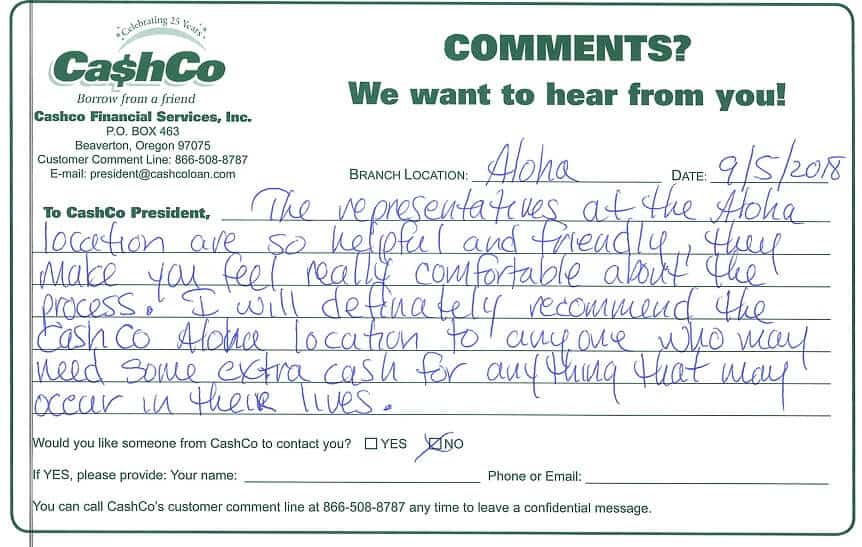 Celebrating 25 Years
Ca$hCo
Borrow from a friend
Cashco Financial Services, Inc.
P.O. BOX 463
Beaverton, Oregon 97075
Customer Comment Line: 866-508-8787
E-mail: president@cashcoloan.com
COMMENTS?
We want to hear from you!
BRANCH LOCATION: Aloha DATE: 9/5/2018
To CashCo President, The representatives at the Aloha
location are so helpful and friendly, they
make you feel really comfortable about the
process. I will definately recommend the
Cash Co Aloha location to anyone who may
need some extra cash for anything that may
occur in their lives.
Would you like someone from CashCo to contact you? ☐ YES ☒ NO
If YES, please provide: Your name: Phone or Email:
You can call CashCo's customer comment line at 866-508-8787 any time to leave a confidential message.